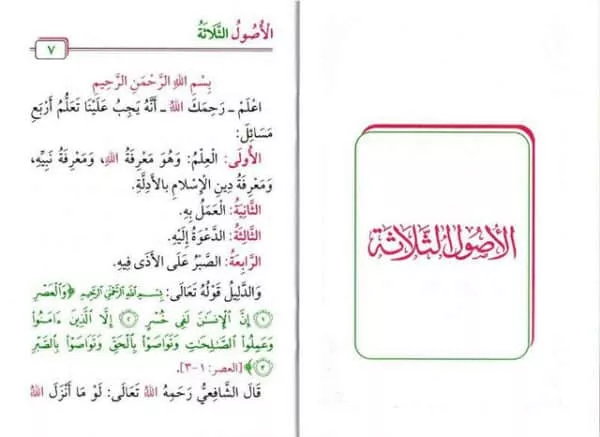 الأصول الثلاثة
الأُصُولُ الثَّلَاثَةُ
٧
بِسْمِ اللهِ الرَّحْمَنِ الرَّحِيمِ
اعْلَمْ ـ رَحِمَكَ اللهُ ـ أَنَّهُ يَجِبُ عَلَيْنَا تَعَلُّمُ أَرْبَعِ
مَسَائِلَ:
الأُولَى: الْعِلْمُ: وَهُوَ مَعْرِفَةُ اللهِ، وَمَعْرِفَةُ نَبِيِّهِ،
وَمَعْرِفَةُ دِينِ الْإِسْلَامِ بِالأَدِلَّةِ.
الثَّانِيَةُ: الْعَمَلُ بِهِ.
الثَّالِثَةُ: الدَّعْوَةُ إِلَيْهِ.
الرَّابِعَةُ: الصَّبْرُ عَلَى الأَذَى فِيهِ.
وَالدَّلِيلُ قَوْلُهُ تَعَالَى: بِسْمِ اللهِ الرَّحْمَنِ الرَّحِيمِ ﴿وَٱلْعَصْرِ
١ إِنَّ ٱلْإِنسَٰنَ لَفِى خُسْرٍ ٢ إِلَّا ٱلَّذِينَ ءَامَنُوا۟
وَعَمِلُوا۟ ٱلصَّٰلِحَٰتِ وَتَوَاصَوْا۟ بِٱلْحَقِّ وَتَوَاصَوْا۟ بِٱلصَّبْرِ
٣﴾ [العصر: ١-٣].
قَالَ الشَّافِعِيُّ رَحِمَهُ اللهُ تَعَالَى: لَوْ مَا أَنْزَلَ اللهُ